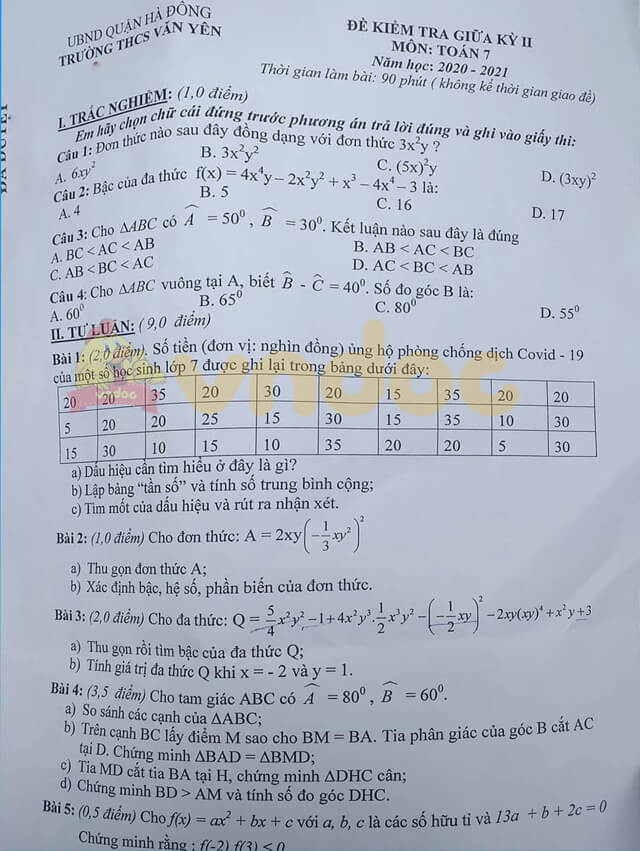 UBND QUẬN HÀ ĐÔNG
TRƯỜNG THCS VĂN YÊN
ĐỀ KIỂM TRA GIỮA KỲ II
MÔN: TOÁN 7
Năm học: 2020 - 2021
Thời gian làm bài: 90 phút ( không kể thời gian giao đề)
I. TRẮC NGHIỆM: (1,0 điểm)
Em hãy chọn chữ cái đứng trước phương án trả lời đúng và ghi vào giấy thi:
Câu 1: Đơn thức nào sau đây đồng dạng với đơn thức 3x²y ?
A. 6xy² B. 3x²y² C. (5x)²y D. (3xy)²
Câu 2: Bậc của đa thức f(x) = 4x⁴y – 2x²y² + x³ – 4x⁴ – 3 là:
A. 4 B. 5 C. 16 D. 17
Câu 3: Cho ΔABC có Â = 50⁰ , B̂ = 30⁰. Kết luận nào sau đây là đúng
A. BC < AC < AB B. AB < AC < BC
C. AB < BC < AC D. AC < BC < AB
Câu 4: Cho ΔABC vuông tại A, biết B̂ - Ĉ = 40⁰. Số đo góc B là:
A. 60⁰ B. 65⁰ C. 80⁰ D. 55⁰
II. TỰ LUẬN: ( 9,0 điểm)
Bài 1: (2,0 điểm). Số tiền (đơn vị: nghìn đồng) ủng hộ phòng chống dịch Covid - 19
của một số học sinh lớp 7 được ghi lại trong bảng dưới đây:
20 20 35 20 30 20 15 35 20 20
5 20 20 25 15 30 15 35 10 30
15 30 10 15 10 35 20 20 5 30
a) Dấu hiệu cần tìm hiểu ở đây là gì?
b) Lập bảng “tần số” và tính số trung bình cộng;
c) Tìm mốt của dấu hiệu và rút ra nhận xét.
Bài 2: (1,0 điểm) Cho đơn thức: A = 2xy(-1/3 xy²)²
a) Thu gọn đơn thức A;
b) Xác định bậc, hệ số, phần biến của đơn thức.
Bài 3: (2,0 điểm) Cho đa thức: Q = 5/4 x²y² – 1 + 4x²y³.1/2 x³y² – (-1/2 xy)² – 2xy(xy)⁴ + x²y + 3
a) Thu gọn rồi tìm bậc của đa thức Q;
b) Tính giá trị đa thức Q khi x = - 2 và y = 1.
Bài 4: (3,5 điểm) Cho tam giác ABC có Â = 80⁰ , B̂ = 60⁰.
a) So sánh các cạnh của ΔABC;
b) Trên cạnh BC lấy điểm M sao cho BM = BA. Tia phân giác của góc B cắt AC
tại D. Chứng minh ΔBAD = ΔBMD;
c) Tia MD cắt tia BA tại H, chứng minh ΔDHC cân;
d) Chứng minh BD > AM và tính số đo góc DHC.
Bài 5: (0,5 điểm) Cho f(x) = ax² + bx + c với a, b, c là các số hữu tỉ và 13a + b + 2c = 0
Chứng minh rằng : f(-2).f(3) ≤ 0
vndoc